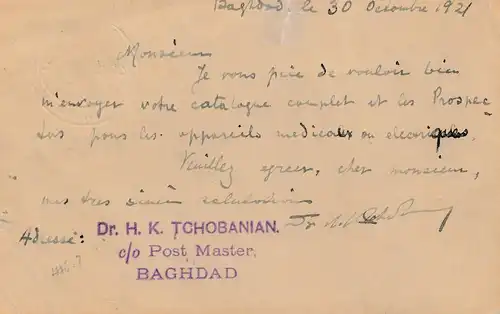 Baghdad, le 30 Décembre 1921
Monsieur
Je vous prie de vouloir bien
m'envoyer votre catalogue complet et les Prospec
tus pous les appareils medicaux ou electriques
Veuillez agreer, cher monsieur,
mes tres salutations
Adresse: Dr. H. K. TCHOBANIAN. Dr
c/o Post Master,
BAGHDAD